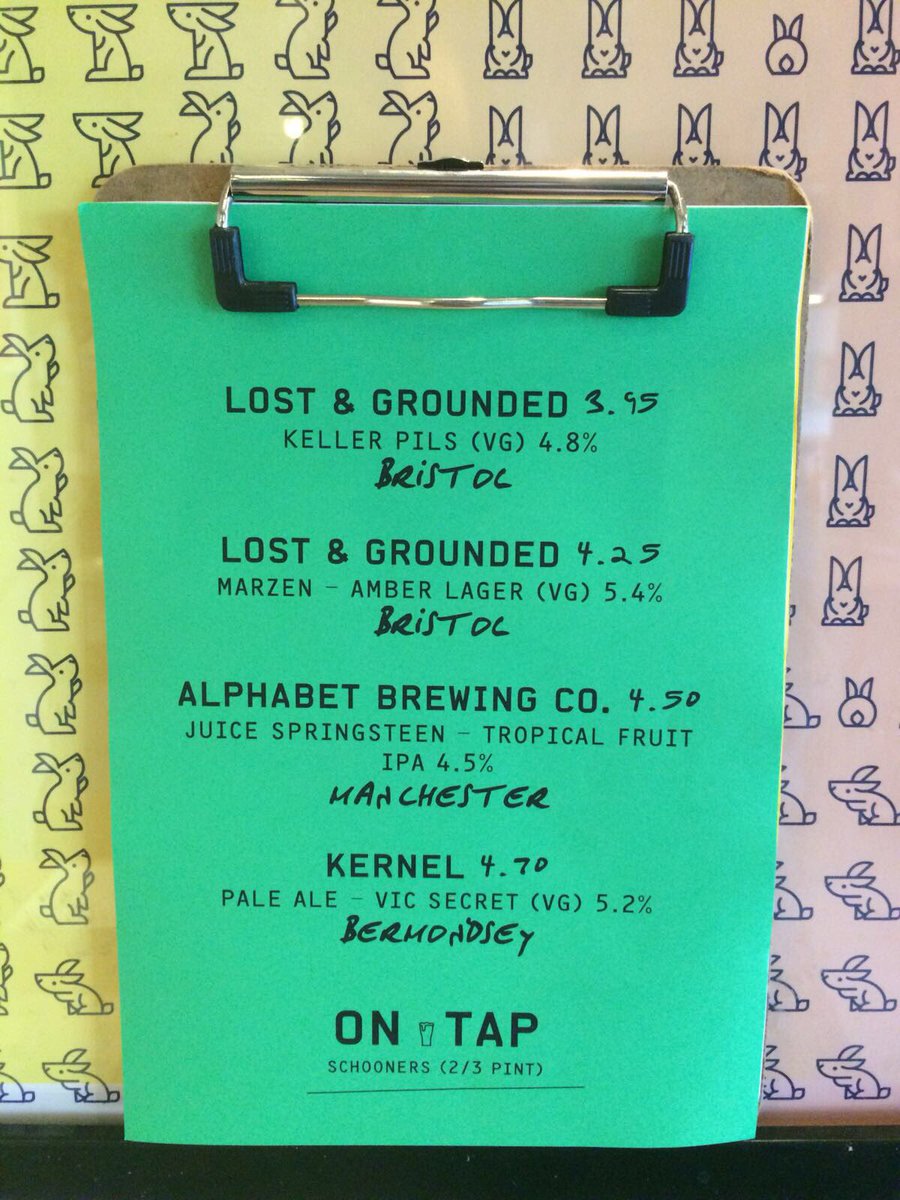 LOST & GROUNDED 3.95
KELLER PILS (VG) 4.8%
BRISTOL
LOST & GROUNDED 4.25
MARZEN – AMBER LAGER (VG) 5.4%
BRISTOL
ALPHABET BREWING CO. 4.50
JUICE SPRINGSTEEN – TROPICAL FRUIT
IPA 4.5%
MANCHESTER
KERNEL 4.70
PALE ALE – VIC SECRET (VG) 5.2%
BERMONDSEY
ON TAP
SCHOONERS (2/3 PINT)